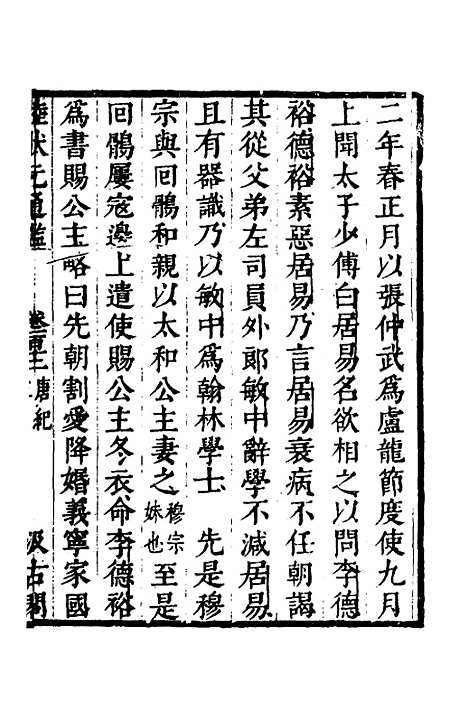 二年春正月以張仲武爲盧龍節度使九月
上聞太子少傅白居易名欲相之以問李德
裕德裕素惡居易乃言居易衰病不任朝謁
其從父弟左司員外郎敏中辭學不減居易
且有器識乃以敏中爲翰林學士　先是穆
宗與回鶻和親以太和公主妻之穆宗妹也至是
回鶻屢寇邊上遣使賜公主冬衣命李德裕
爲書賜公主略曰先朝割愛降婚義寧家國
陸狀元通鑑　唐紀　汲古閣